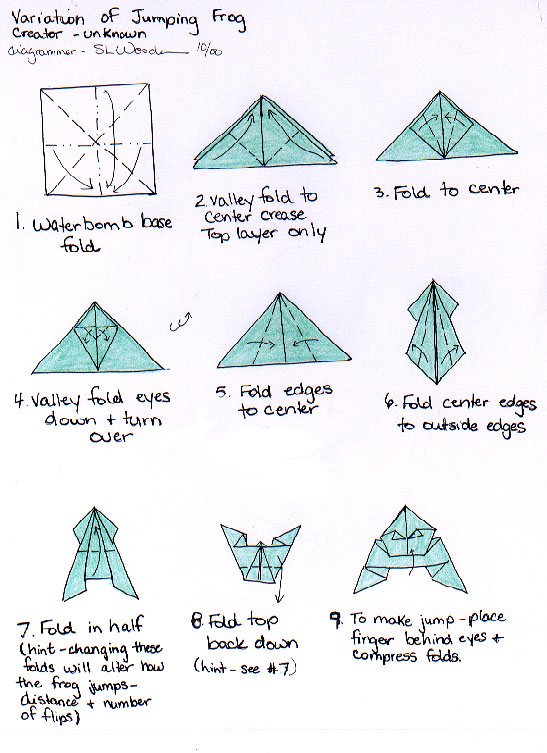 Variation of Jumping Frog
Creator - unknown
diagrammer - SLWooden 10/00
1. Waterbomb base
fold
2. Valley fold to
center crease
Top layer only
3. Fold to center
4. Valley fold eyes
down + turn
over
5. Fold edges
to center
6. Fold center edges
to outside edges
7. Fold in half
(hint - changing these
folds will alter how
the frog jumps-
distance + number
of flips)
8. Fold top
back down
(hint - see #7)
9. To make jump - place
finger behind eyes +
compress folds.